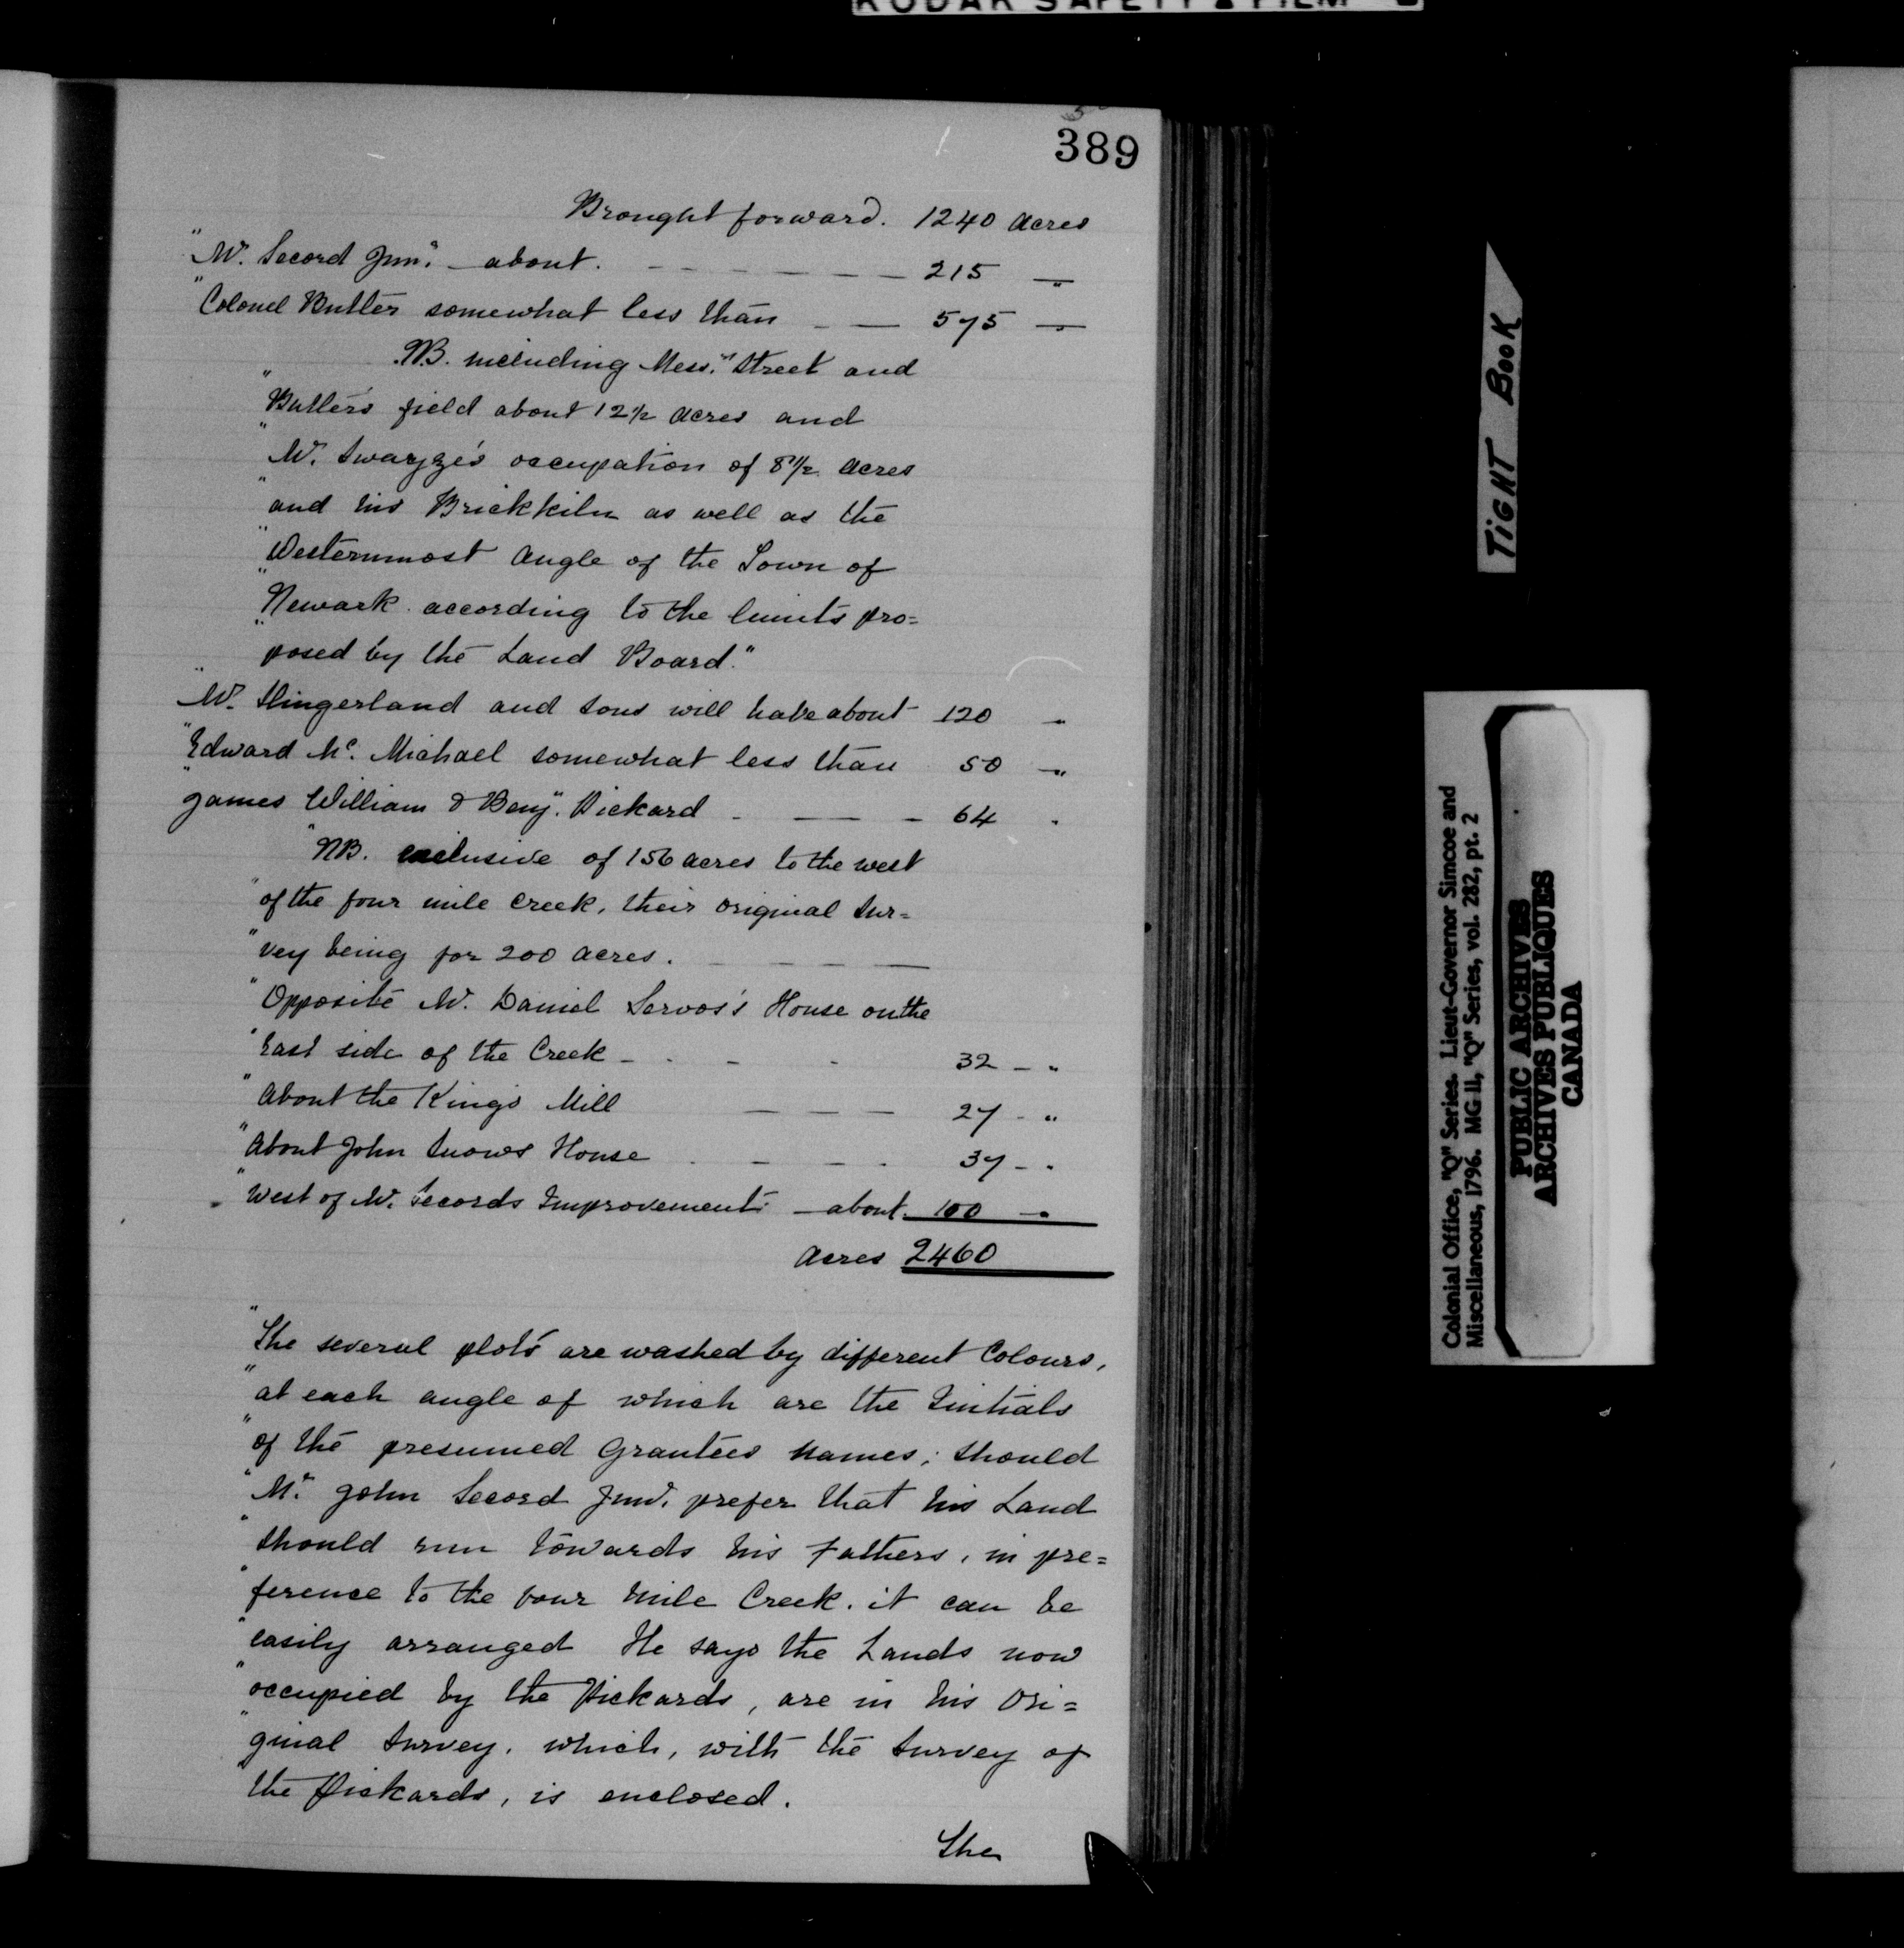 KODAK SAFETY FILM
389
Brought forward. 1240 acres
"Mr. Secord Junr. - about. - - - - - - 215 - "
"Colonel Butler somewhat less than - - 575 - "
NB. including Messrs. Street and
"Butler's field about 12½ acres and
"Mr. Swayze's occupation of 8½ acres
"and his Brickkiln as well as the
"Westernmost angle of the Town of
"Newark according to the limits pro=
"posed by the Land Board."
"Mr. Slingerland and sons will have about - 120 "
"Edward Mc. Michael somewhat less than 50 - "
"James William & Benjn. Pickard - - - 64 "
"NB. exclusive of 156 acres to the west
"of the four mile creek, their original sur=
"vey being for 200 acres. - - - -
"Opposite Mr. Daniel Servos's House on the
"East side of the Creek - - - - 32 - "
"About the King's Mill - - - 27 - "
"About John Snows House - - - - 37 - "
"West of Mr. Secords Improvements - about. 100 - "
Acres 2460
"The several plots are washed by different Colours,
"at each angle of which are the Initials
"of the presumed Grantees names; should
"Mr. John Secord Junr. prefer that his Land
"should run towards his Fathers, in pre=
"ference to the four mile Creek. it can be
"easily arranged He says the Lands now
"occupied by the Pickards, are in his Ori=
"ginal Survey, which, with the Survey of
the Pickards, is enclosed.
The
TIGHT BOOK
Colonial Office, "Q" Series. Lieut-Governor Simcoe and
Miscellaneous, 1796. MG 11, "Q" Series, vol. 282, pt. 2
PUBLIC ARCHIVES
ARCHIVES PUBLIQUES
CANADA